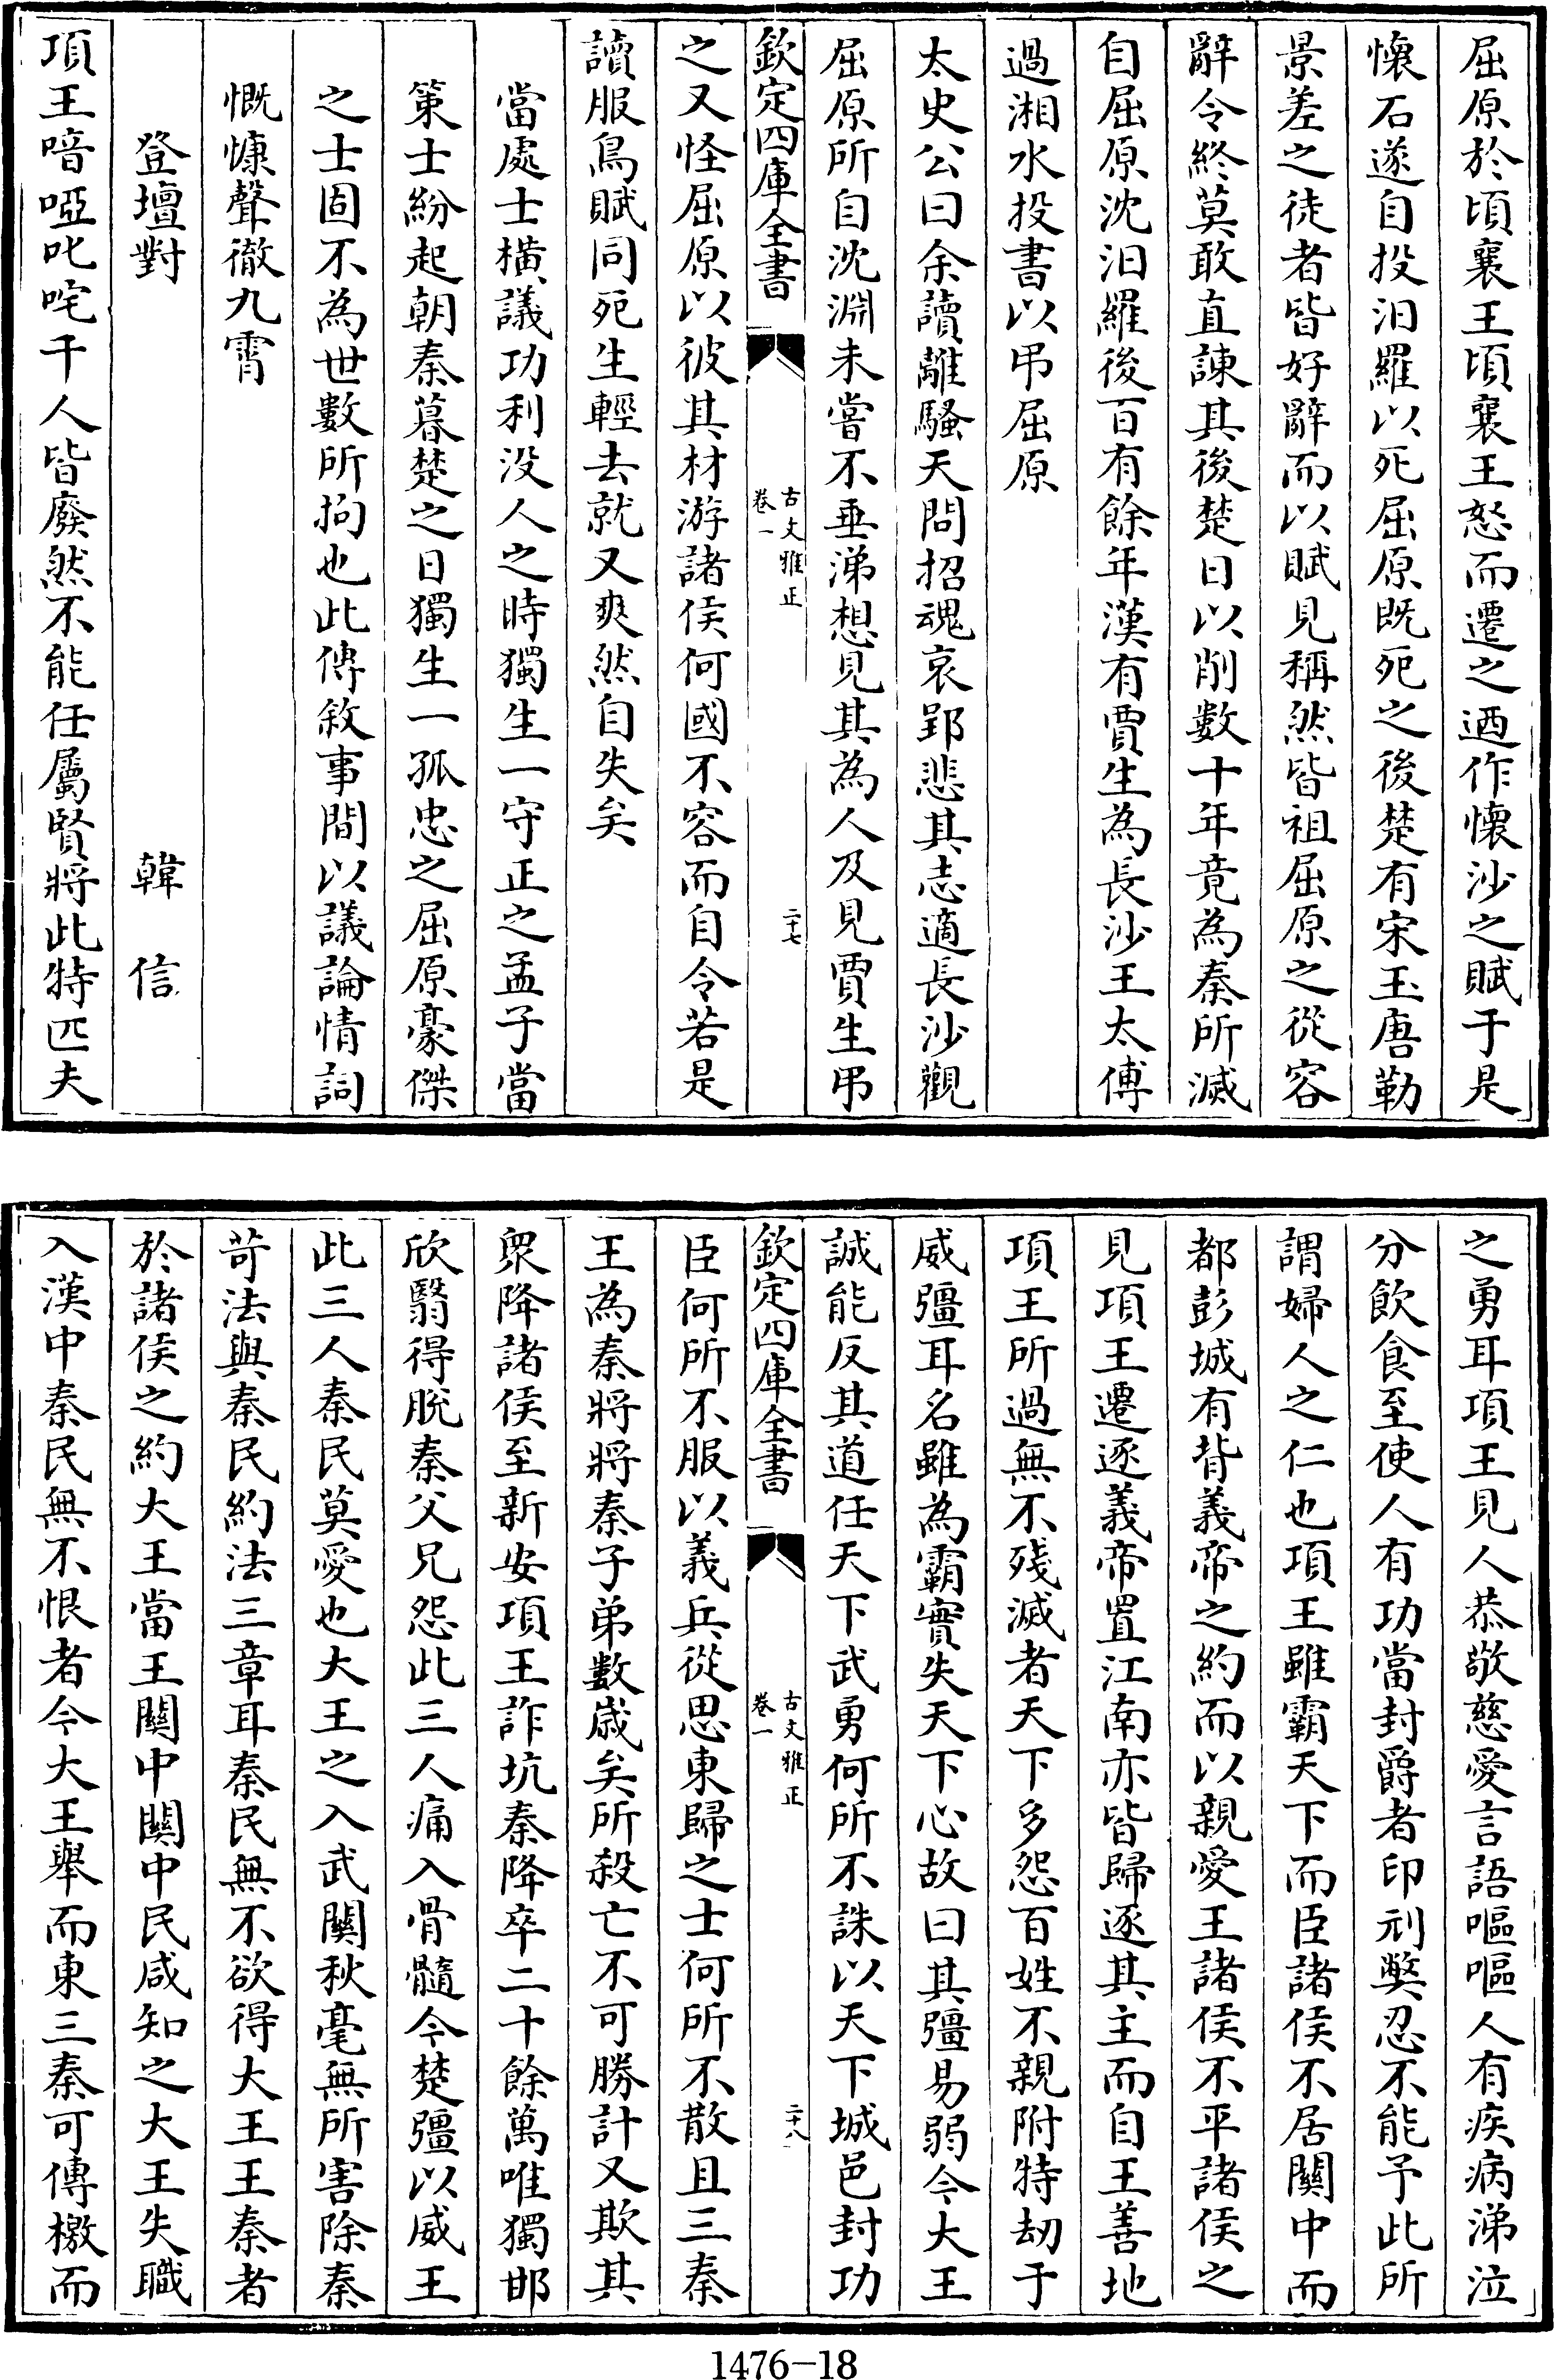 屈原於頃襄王頃襄王怒而遷之迺作懷沙之賦于是
懷石遂自投汨羅以死屈原既死之後楚有宋玉唐勒
景差之徒者皆好辭而以賦見稱然皆祖屈原之從容
辭令終莫敢直諫其後楚日以削數十年竟為秦所滅
自屈原沈汨羅後百有餘年漢有賈生為長沙王太傅
過湘水投書以弔屈原
太史公曰余讀離騷天問招魂哀郢悲其志適長沙觀
屈原所自沈淵未嘗不垂涕想見其為人及見賈生弔
欽定四庫全書
古文雅正
卷一
二十七
之又怪屈原以彼其材游諸侯何國不容而自令若是
讀服鳥賦同死生輕去就又爽然自失矣
當處士橫議功利沒人之時獨生一守正之孟子當
策士紛起朝秦暮楚之日獨生一孤忠之屈原豪傑
之士固不為世數所拘也此傳敘事間以議論情詞
慨慷聲徹九霄
登壇對　韓信
項王喑啞叱咤千人皆廢然不能任屬賢將此特匹夫
之勇耳項王見人恭敬慈愛言語嘔嘔人有疾病涕泣
分飲食至使人有功當封爵者印刓獘忍不能予此所
謂婦人之仁也項王雖霸天下而臣諸侯不居關中而
都彭城有背義帝之約而以親愛王諸侯不平諸侯之
見項王遷逐義帝置江南亦皆歸逐其主而自王善地
項王所過無不殘滅者天下多怨百姓不親附特劫于
威彊耳名雖為霸實失天下心故曰其彊易弱今大王
誠能反其道任天下武勇何所不誅以天下城邑封功
欽定四庫全書
古文雅正
卷一
二十八
臣何所不服以義兵從思東歸之士何所不散且三秦
王為秦將將秦子弟數歲矣所殺亡不可勝計又欺其
衆降諸侯至新安項王詐坑秦降卒二十餘萬唯獨邯
欣翳得脫秦父兄怨此三人痛入骨髓今楚彊以威王
此三人秦民莫愛也大王之入武關秋毫無所害除秦
苛法與秦民約法三章耳秦民無不欲得大王王秦者
於諸侯之約大王當王關中關中民咸知之大王失職
入漢中秦民無不恨者今大王舉而東三秦可傳檄而
1476-18